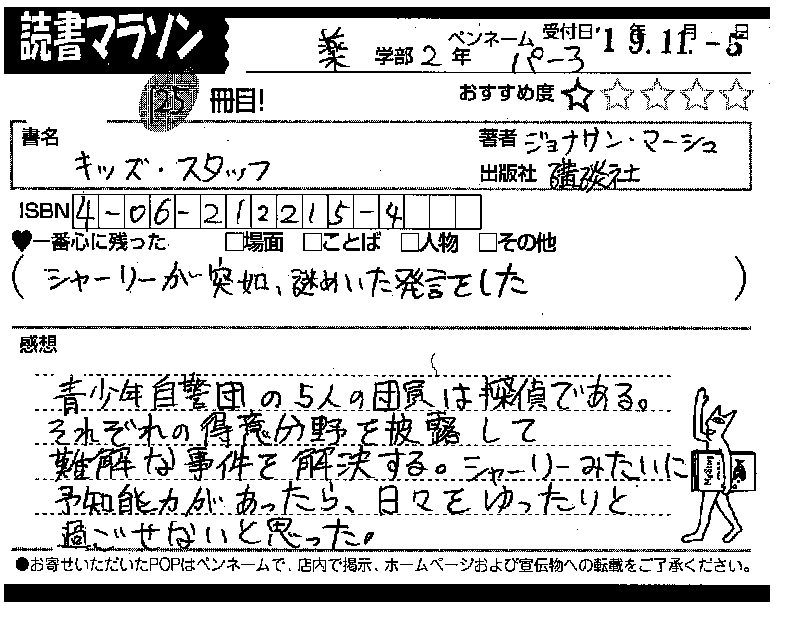 読書マラソン
薬 学部 2 年 ペンネーム パース 受付日 '19.11.-5
25 冊目! おすすめ度 ☆☆☆☆☆
書名 キッズ・スタッフ
著者 ジョナサン・マーシュ
出版社 講談社
ISBN 4-06-212215-4
♥一番心に残った □場面 □ことば □人物 □その他
(シャーリーが突如、謎めいた発言をした)
感想
青少年自警団の5人の団員は探偵である。
それぞれの得意分野を披露して
難解な事件を解決する。シャーリーみたいに
予知能力があったら、日々をゆったりと
過ごせないと思った。
●お寄せいただいたPOPはペンネームで、店内で掲示、ホームページおよび宣伝物への転載をご了承ください。